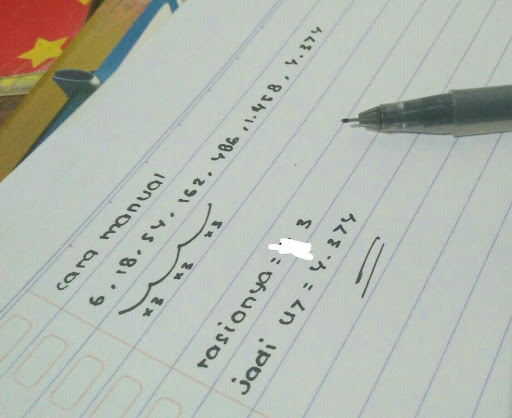 cara manual
6. 18. 54. 162. 486. 1.458. 4.374
x3 x3 x3
rasionya = 3
jadi U7 = 4.374